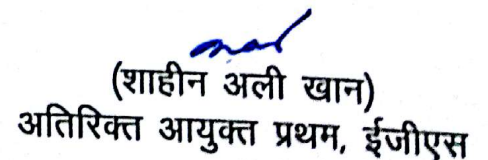 (शाहीन अली खान)
अतिरिक्त आयुक्त प्रथम, ईजीएस